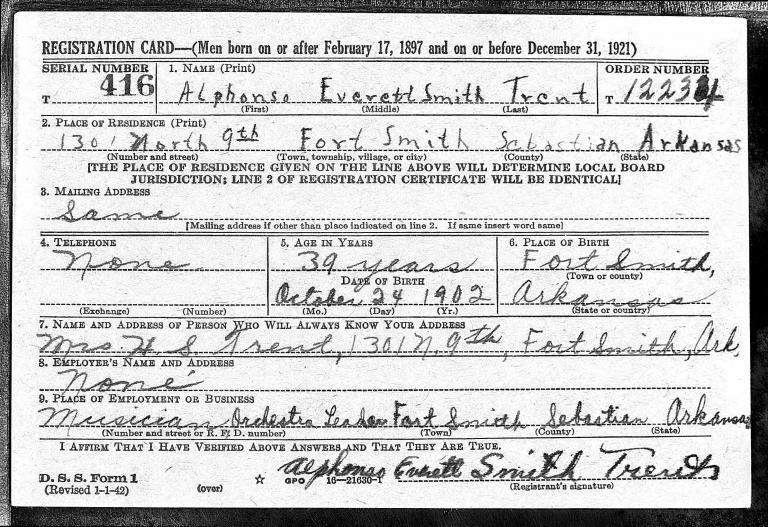 REGISTRATION CARD—(Men born on or after February 17, 1897 and on or before December 31, 1921)
SERIAL NUMBER 1. NAME (Print) ORDER NUMBER
T 416 Alphonso Everett Smith Trent T 12234
(First) (Middle) (Last)
2. PLACE OF RESIDENCE (Print)
1301 North 9th Fort Smith Sebastian Arkansas
(Number and street) (Town, township, village, or city) (County) (State)
[THE PLACE OF RESIDENCE GIVEN ON THE LINE ABOVE WILL DETERMINE LOCAL BOARD
JURISDICTION; LINE 2 OF REGISTRATION CERTIFICATE WILL BE IDENTICAL]
3. MAILING ADDRESS
Same
[Mailing address if other than place indicated on line 2. If same insert word same]
4. TELEPHONE 5. AGE IN YEARS 6. PLACE OF BIRTH
None 39 years Fort Smith,
(Town or county)
DATE OF BIRTH
October 24 1902 Arkansas
(Exchange) (Number) (Mo.) (Day) (Yr.) (State or country)
7. NAME AND ADDRESS OF PERSON WHO WILL ALWAYS KNOW YOUR ADDRESS
Mrs H. S. Trent, 1301 N. 9th, Fort Smith, Ark,
8. EMPLOYER'S NAME AND ADDRESS
None
9. PLACE OF EMPLOYMENT OR BUSINESS
Musician Orchestra Leader Fort Smith Sebastian Arkansas
(Number and street or R. F. D. number) (Town) (County) (State)
I AFFIRM THAT I HAVE VERIFIED ABOVE ANSWERS AND THAT THEY ARE TRUE.
Alphonso Everett Smith Trent
D. S. S. Form 1 GPO 16—21630-1 (Registrant's signature)
(Revised 1-1-42) (over)